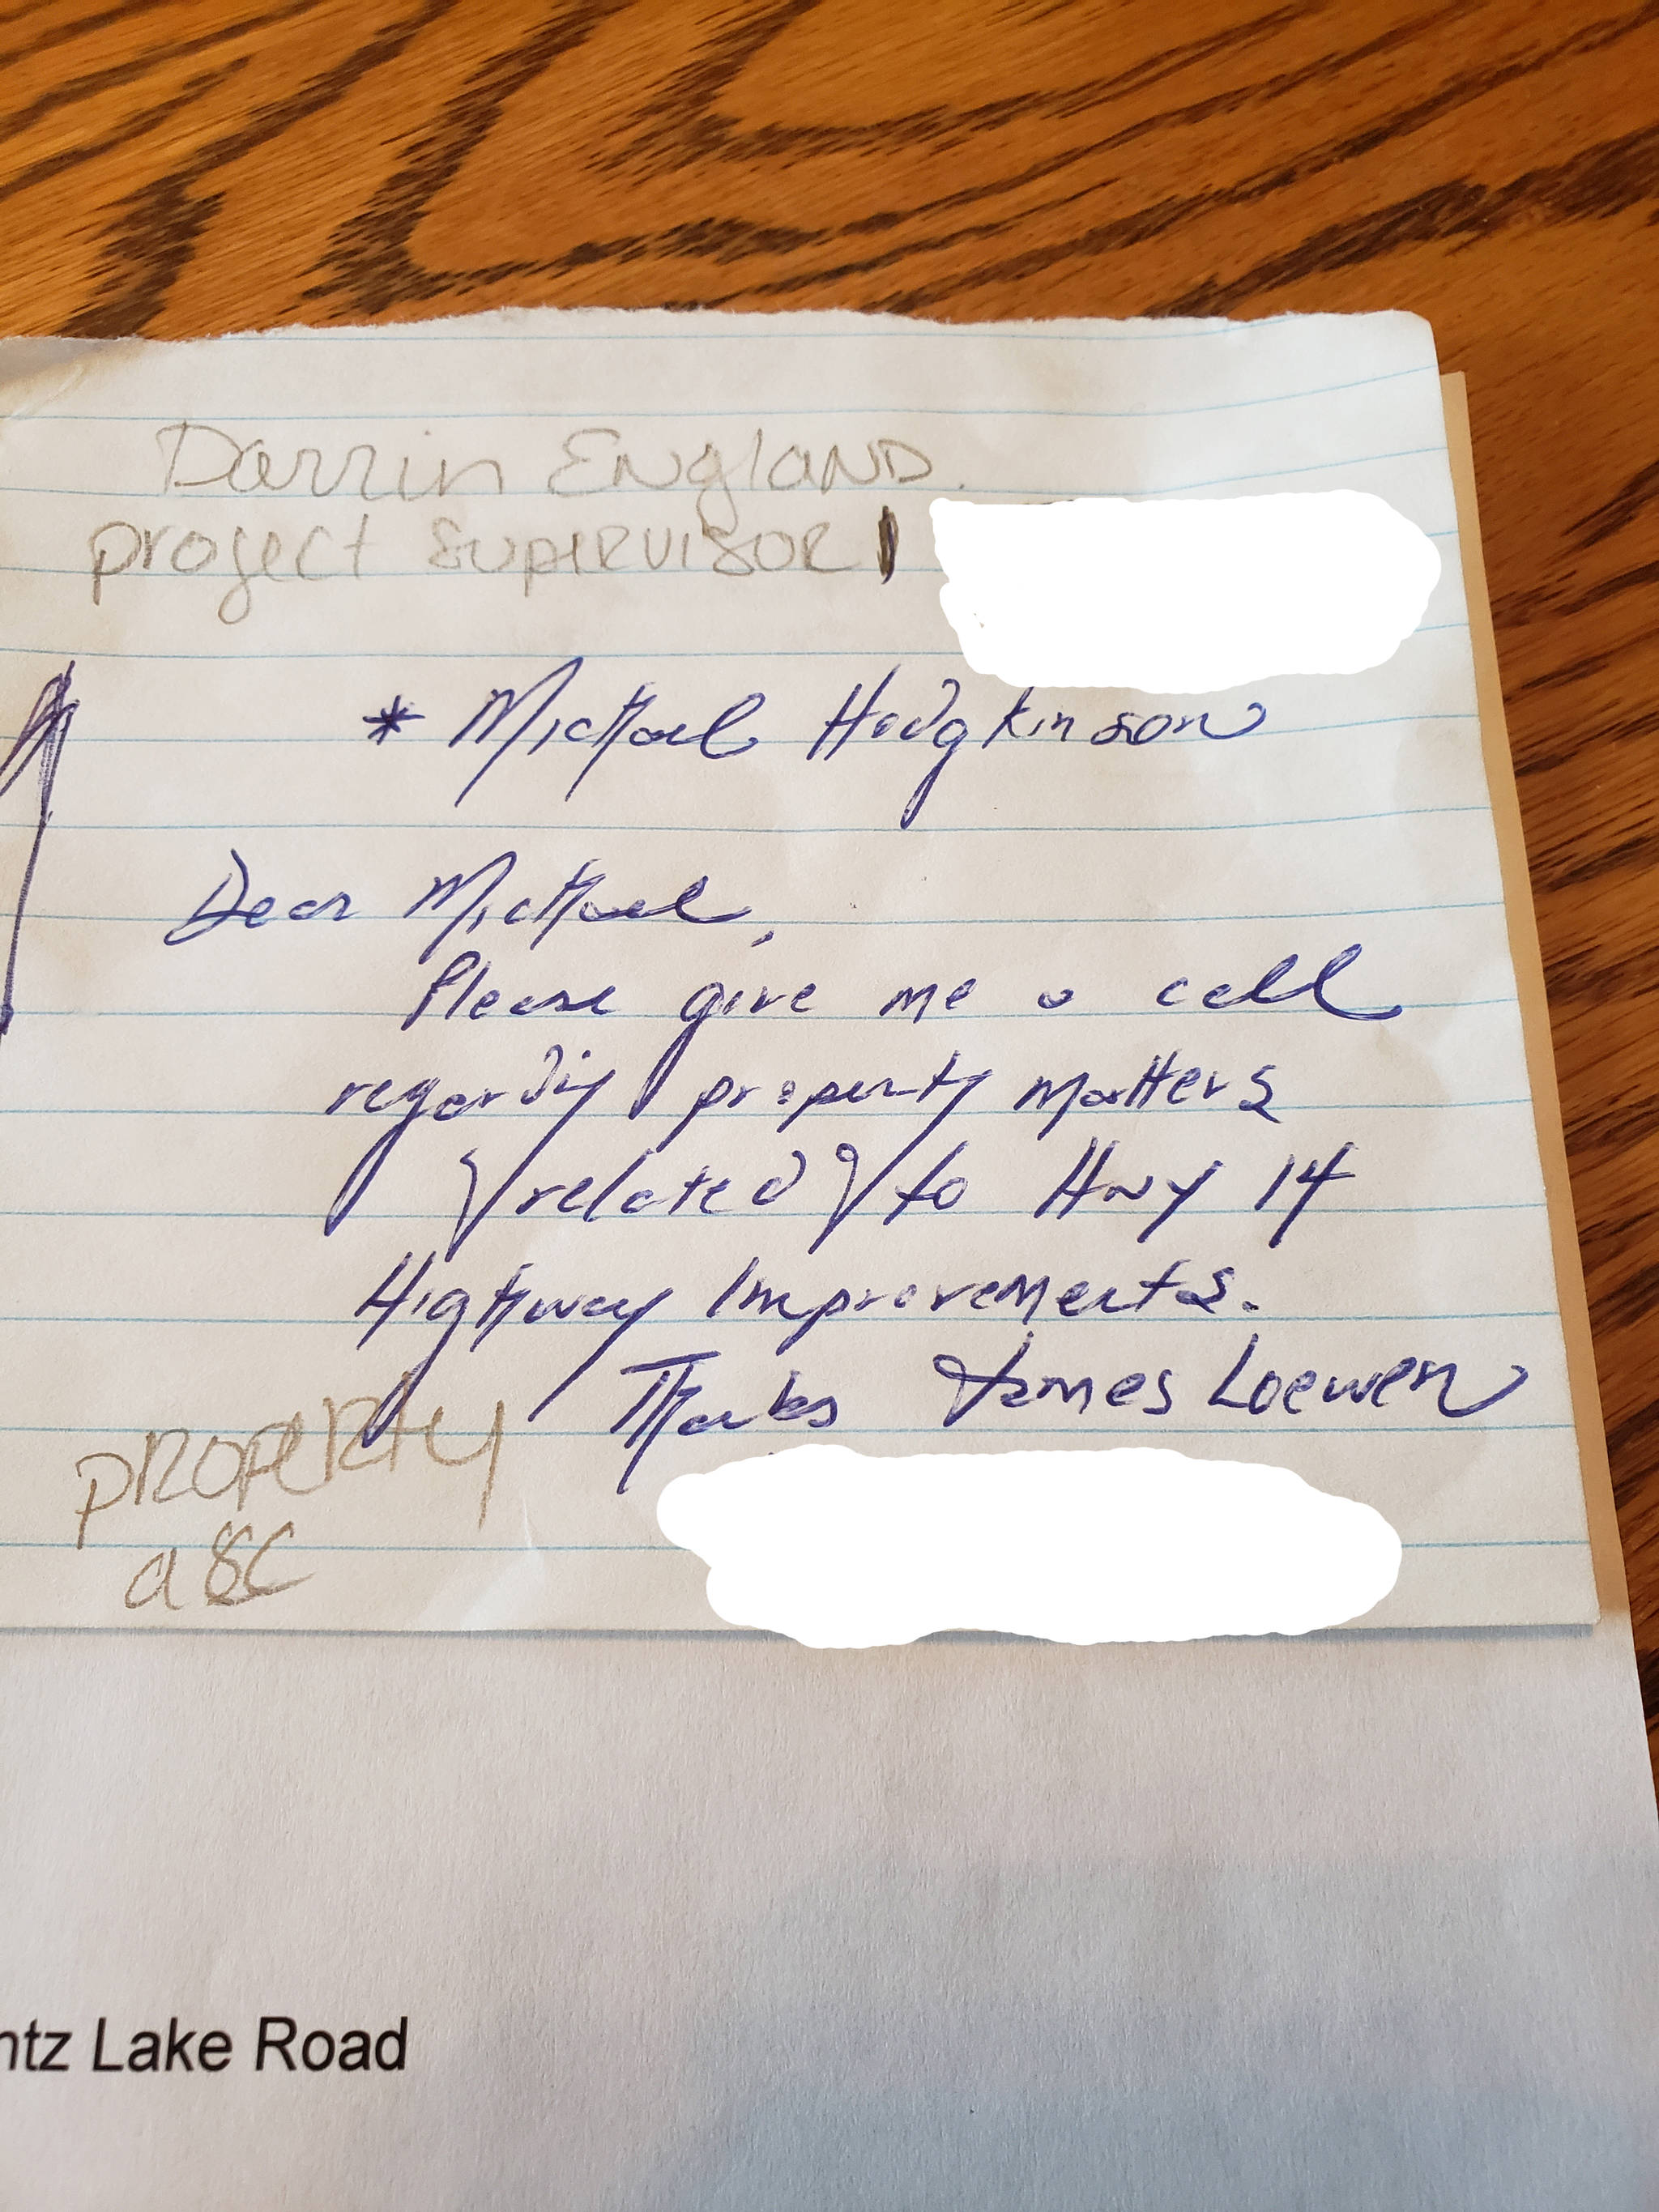 Darrin ENglAND.
project SUPERVISOR
* Michael Hodgkinson
Dear Michael,
Please give me a call
regarding property matters
related to Hwy 14
Highway Improvements.
Thanks James Loewen
PROPERty
ntz Lake Road